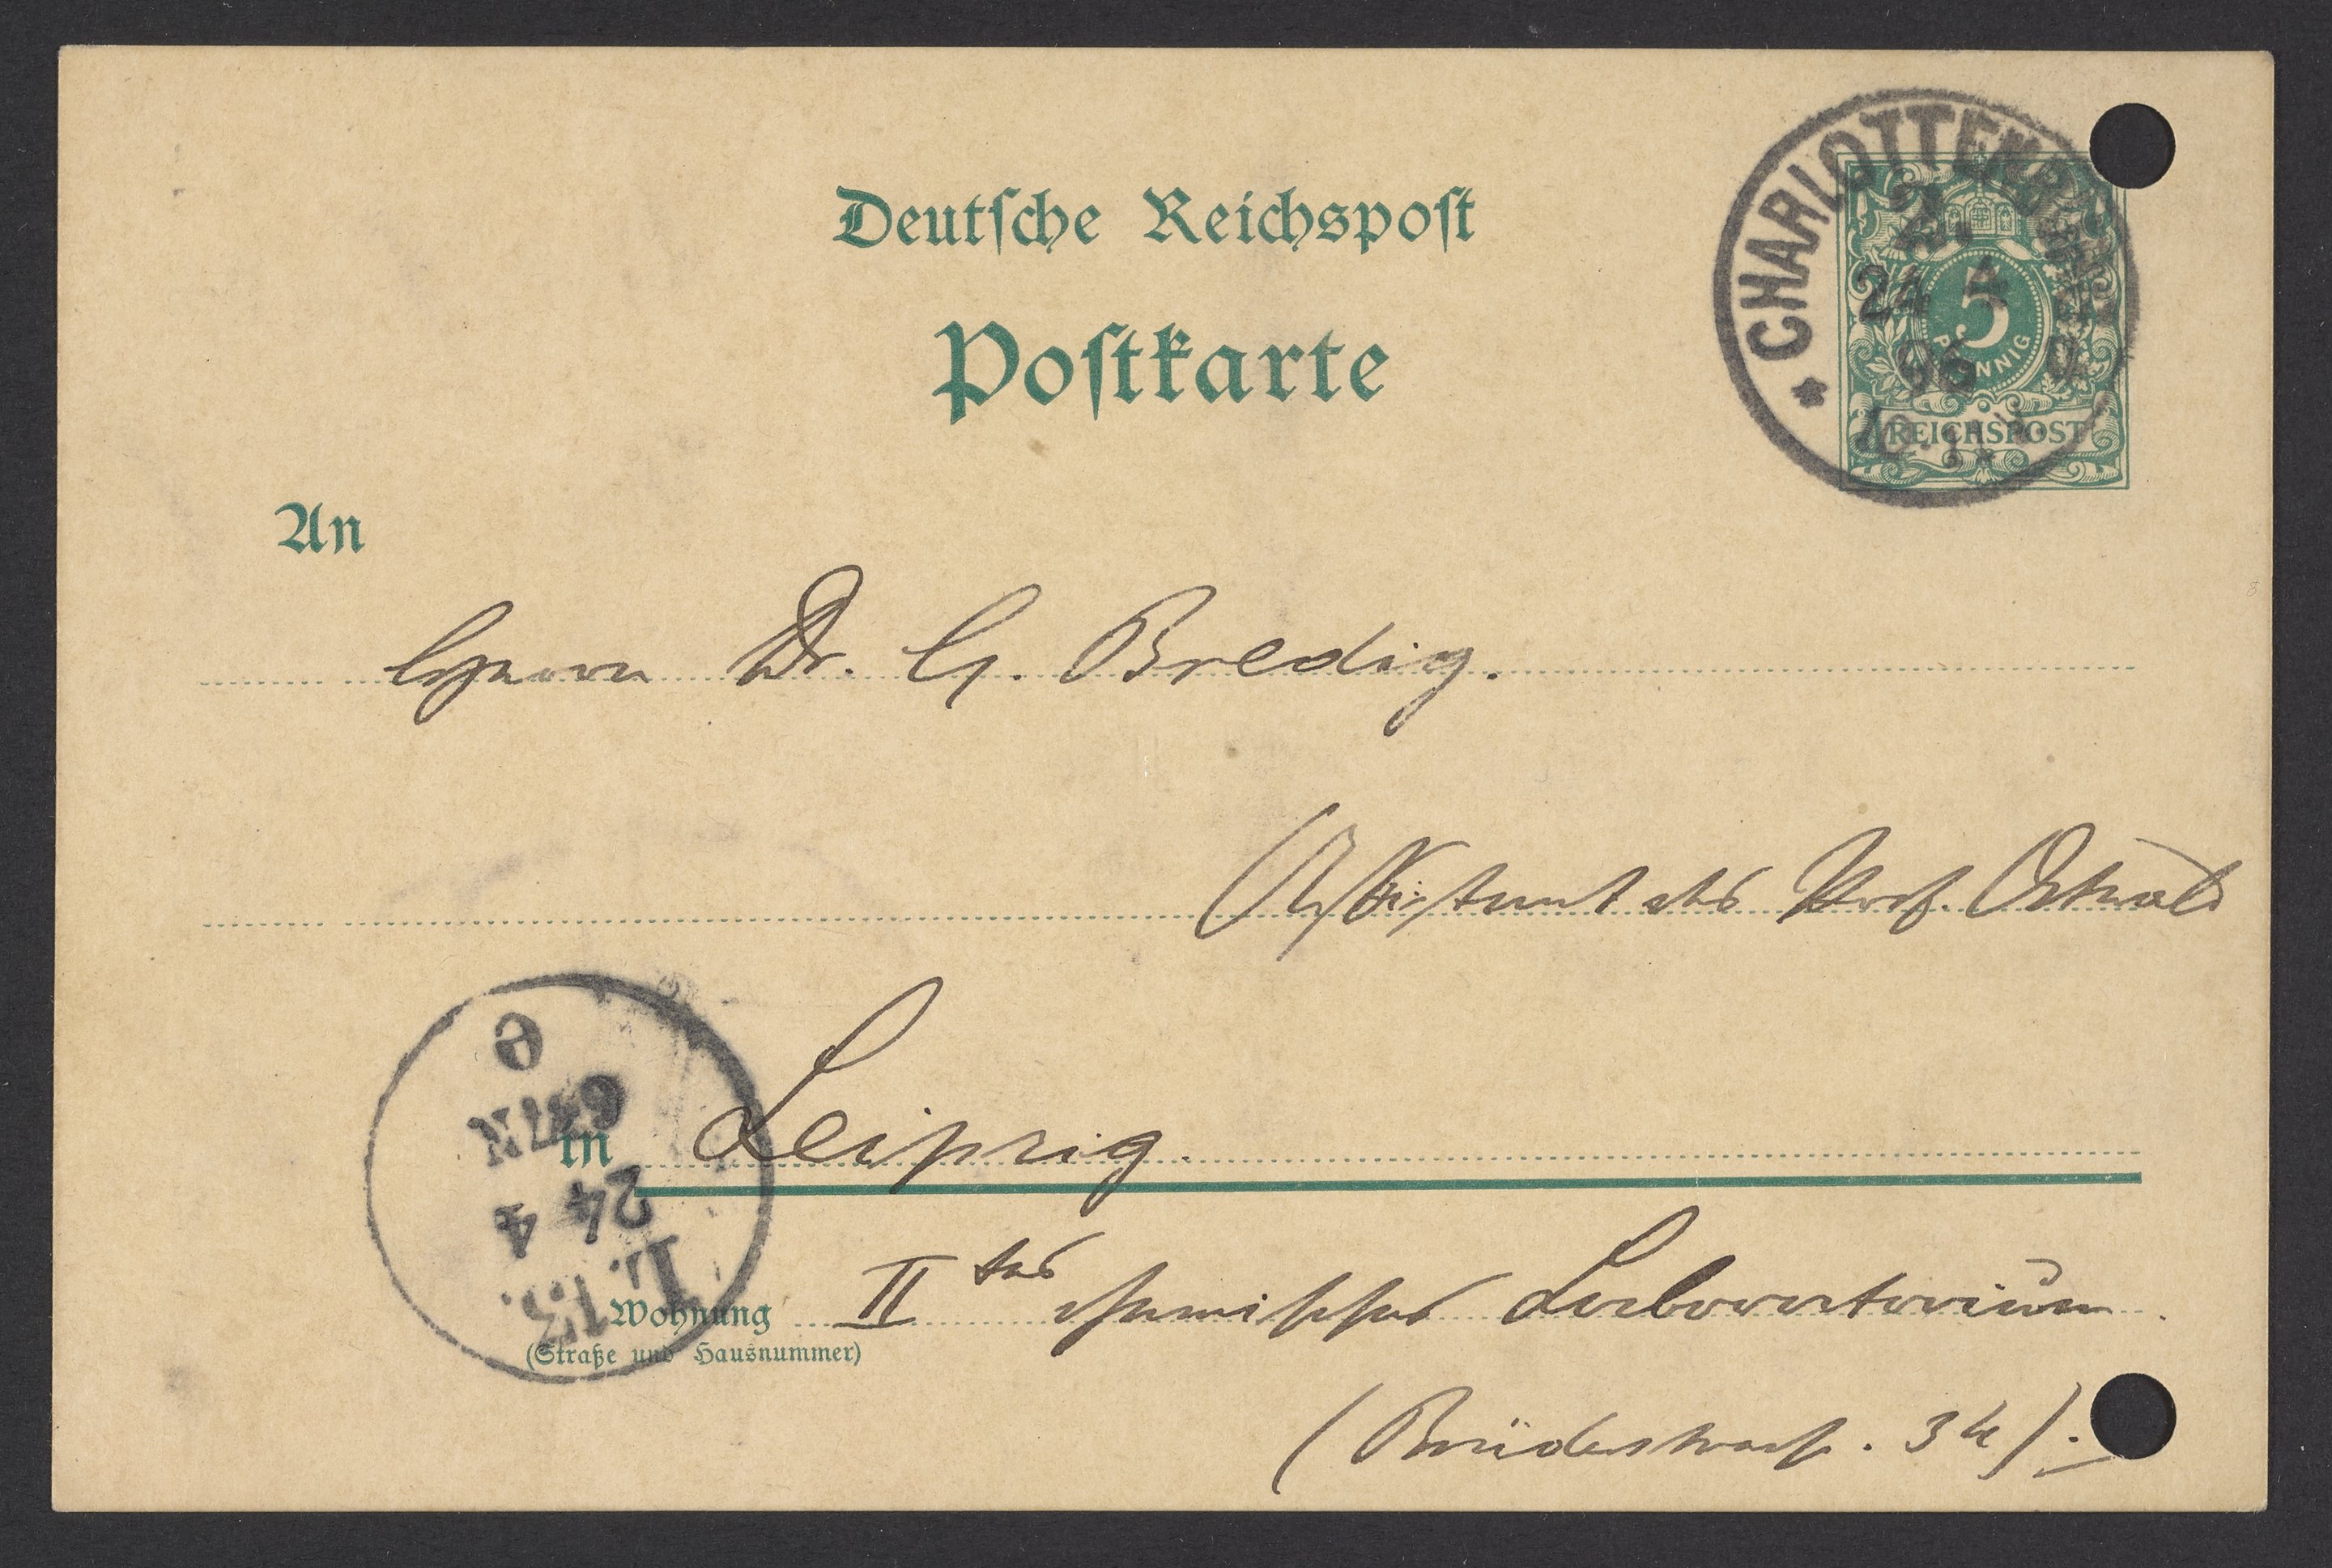 Deutsche Reichspost
Postkarte
CHARLOTTENB
2.
24 4
96
5
PFENNIG
REICHSPOST
An
Herrn Dr. G. Bredig.
(Assistent des Prof. Ostwald
in Leipzig.
II tes chemisches Laboratorium
Wohnung
(Straße und Hausnummer)
(Brüderstraße. 34).
L. 13.
24 4
6-7 N
e